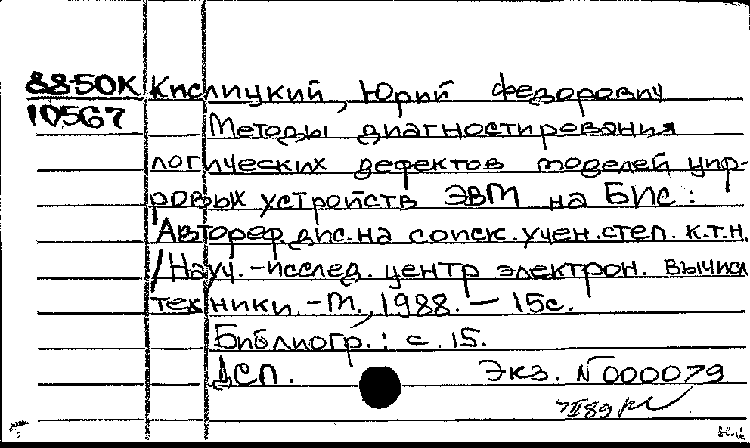 88-50К Кислицкий, Юрий Федорович
10567 Методы диагностирования
логических дефектов моделей циф-
ровых устройств ЭВМ на БИС:
Автореф.дис.на соиск.учен.степ.к.т.н.
/Науч.-исслед.центр электрон.вычисл
техники.-М.,1988.-15с.
Библиогр.: с.15.
ДСП. Экз. N000079